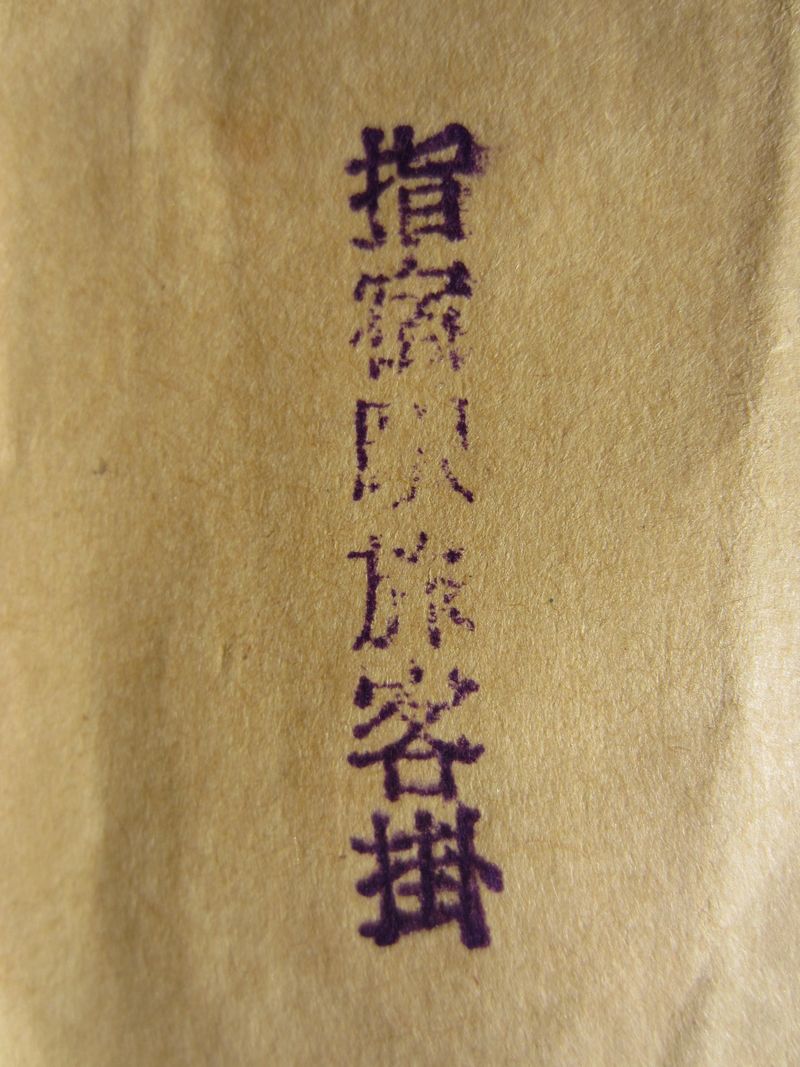 指宿駅旅客掛